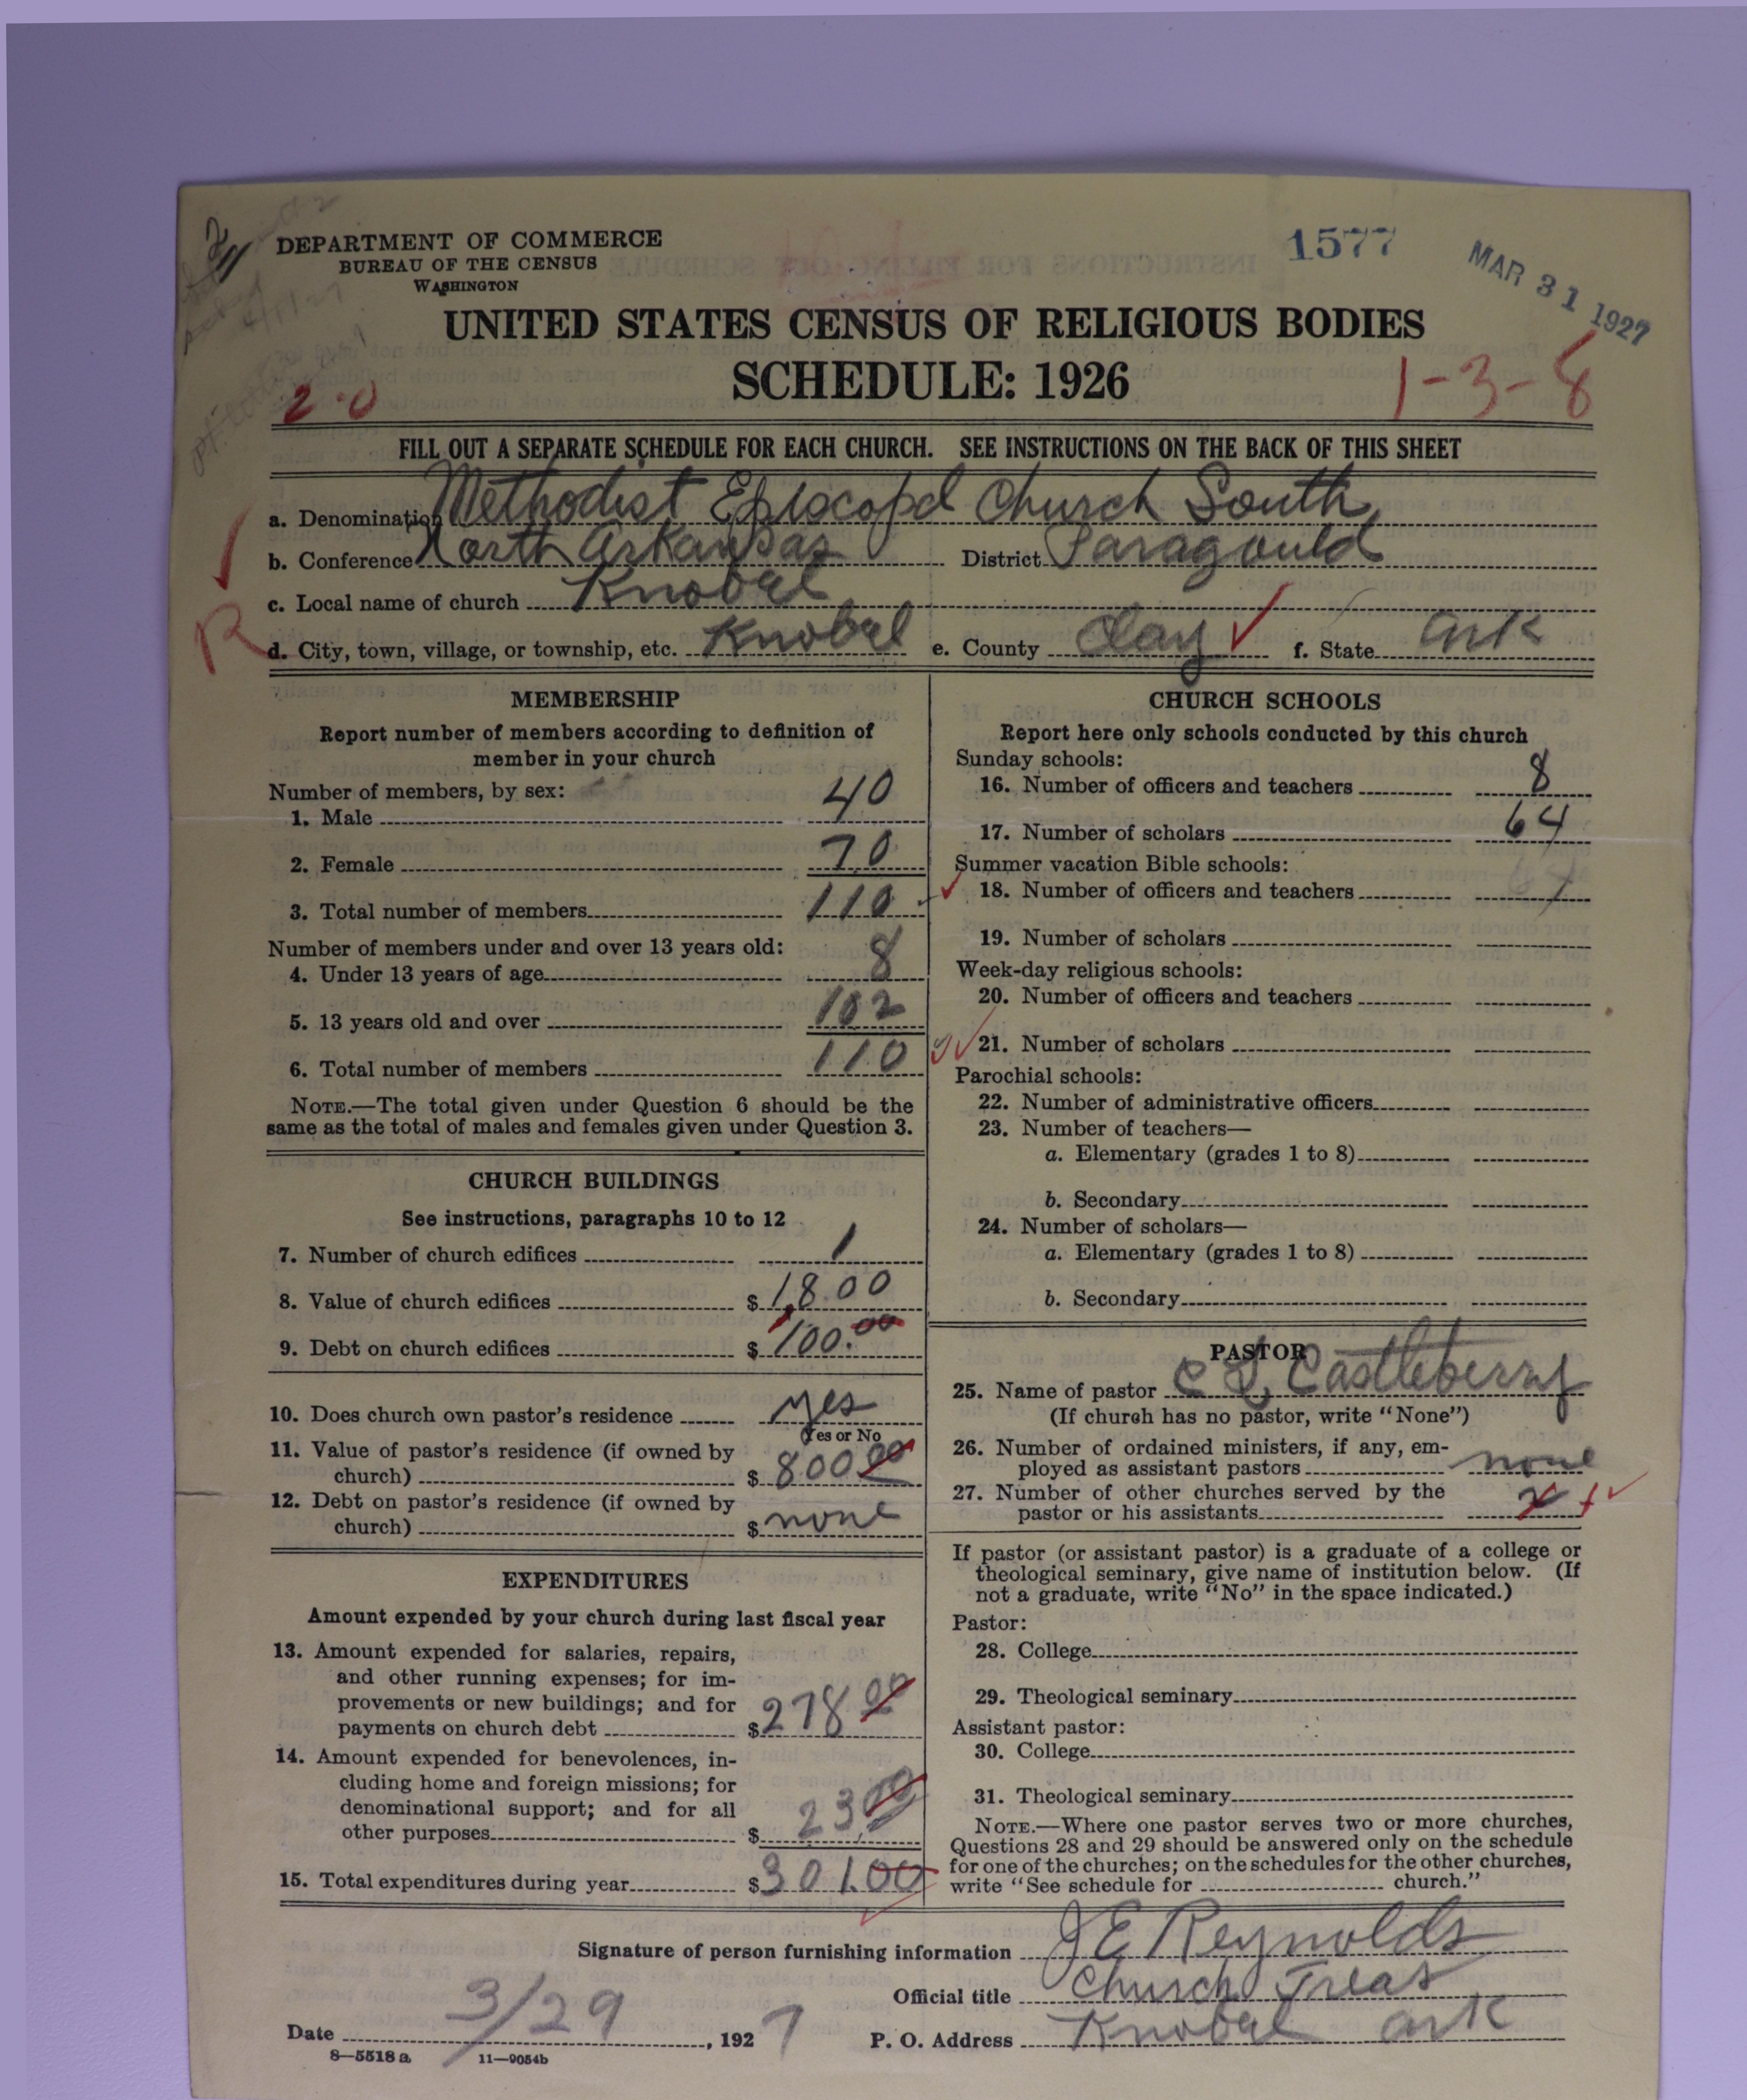 DEPARTMENT OF COMMERCE
BUREAU OF THE CENSUS
WASHINGTON
1577
MAR 31 1927
UNITED STATES CENSUS OF RELIGIOUS BODIES
SCHEDULE: 1926
2-0
1-3-8
FILL OUT A SEPARATE SCHEDULE FOR EACH CHURCH. SEE INSTRUCTIONS ON THE BACK OF THIS SHEET
a. Denomination Methodist Episcopal Church South
b. Conference North Arkansas District Paragould
c. Local name of church Knobel
R
d. City, town, village, or township, etc. Knobel e. County Clay f. State Ark
MEMBERSHIP
Report number of members according to definition of
member in your church
Number of members, by sex:
1. Male 40
2. Female 70
3. Total number of members 110
Number of members under and over 13 years old:
4. Under 13 years of age 8
5. 13 years old and over 102
6. Total number of members 110
NOTE.—The total given under Question 6 should be the
same as the total of males and females given under Question 3.
CHURCH BUILDINGS
See instructions, paragraphs 10 to 12
7. Number of church edifices 1
8. Value of church edifices $ 1,800
9. Debt on church edifices $ 100.00
10. Does church own pastor's residence yes
Yes or No
11. Value of pastor's residence (if owned by
church) $ 800 00
12. Debt on pastor's residence (if owned by
church) $ none
EXPENDITURES
Amount expended by your church during last fiscal year
13. Amount expended for salaries, repairs,
and other running expenses; for im-
provements or new buildings; and for
payments on church debt $ 278 00
14. Amount expended for benevolences, in-
cluding home and foreign missions; for
denominational support; and for all
other purposes $ 23.00
15. Total expenditures during year $ 301.00
CHURCH SCHOOLS
Report here only schools conducted by this church
Sunday schools:
16. Number of officers and teachers 8
17. Number of scholars 64
Summer vacation Bible schools:
18. Number of officers and teachers
19. Number of scholars
Week-day religious schools:
20. Number of officers and teachers
21. Number of scholars
Parochial schools:
22. Number of administrative officers
23. Number of teachers—
a. Elementary (grades 1 to 8)
b. Secondary
24. Number of scholars—
a. Elementary (grades 1 to 8)
b. Secondary
PASTOR
25. Name of pastor C L Castleberry
(If church has no pastor, write "None")
26. Number of ordained ministers, if any, em-
ployed as assistant pastors none
27. Number of other churches served by the
pastor or his assistants
If pastor (or assistant pastor) is a graduate of a college or
theological seminary, give name of institution below. (If
not a graduate, write "No" in the space indicated.)
Pastor:
28. College
29. Theological seminary
Assistant pastor:
30. College
31. Theological seminary
NOTE.—Where one pastor serves two or more churches,
Questions 28 and 29 should be answered only on the schedule
for one of the churches; on the schedules for the other churches,
write "See schedule for church."
Signature of person furnishing information J E Reynolds
Official title Church Treas
Date 3/29, 1927 P. O. Address Knobel Ark
8—5518 a 11—9054b